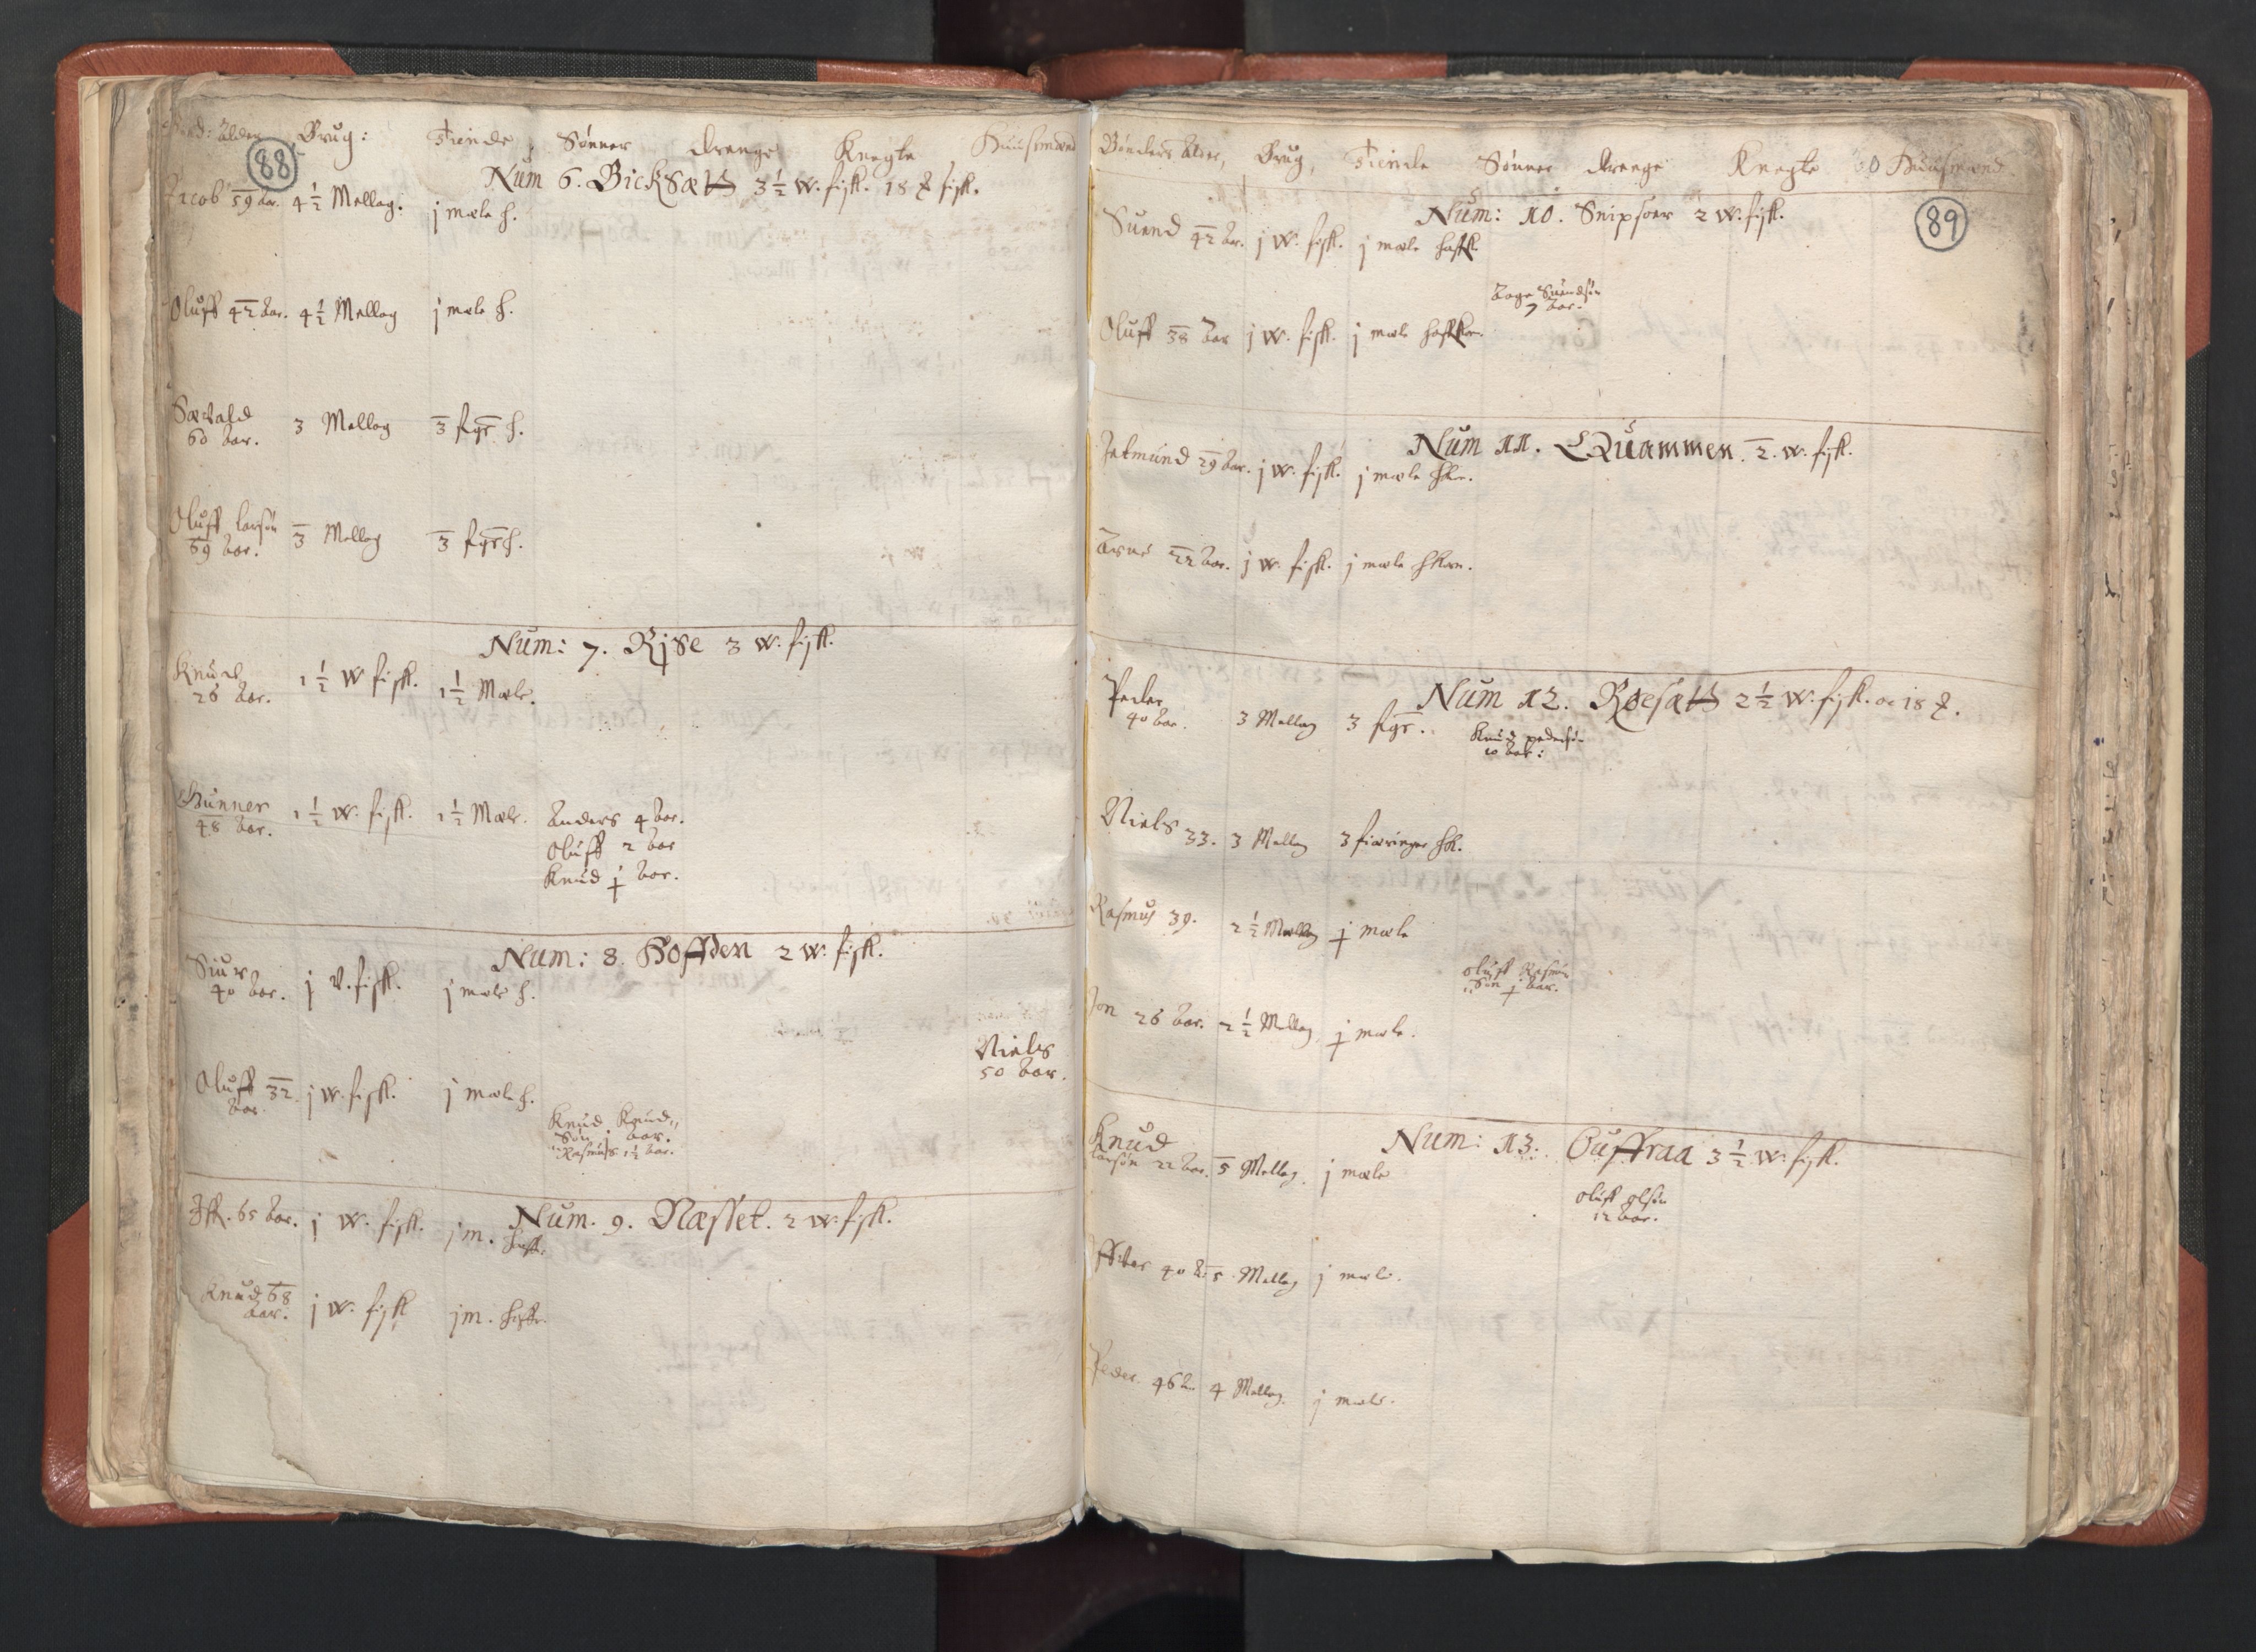 88
Alder Brug: Tiende Sønner drenge Knegte Huusmænd
Num 6. Bicksætt 3½ w. fisk. 18 fisk.
Jacob 59 aar. 4½ Mellag: j mæle h.
Oluff 42 aar. 4½ Mellag j mæle h.
60 aar. 3 Mellag 3 h.
Oluff larsøn
69 aar. 3 Mellag 3 h.
Num: 7. Rise 3 w. fisk.
Knud
26 aar. 1½ W fisk. 1½ Mæle.
Gunner
48 aar. 1½ w. fisk. 1½ Mæle. Anders 4 aar.
Oluff 2 aar
Knud j aar.
Num: 8. Hoffden 2 w. fisk.
Siur
40 aar. j V. fisk. j mæle h.
Niels
50 aar.
Oluff 32
aar. j w. fisk. j mæle h.
Knud Knud„
Søn j aar.
Rasmus 1½ aar.
Num. 9. Næsset. 2 w. fisk.
65 aar. j W. fisk. j m.
Knud 68
aar. j w. fisk j m.
89
Bønders Alder, Brug, Tiende Sønner drenge Knegte Huusmænd.
Num: 10. Snipsøer 2 w. fisk.
Suend 42 aar. j W. fisk. j mæle
Aage Suendsøn
7 aar.
Oluff 38 aar j W. fisk. j mæle
Num 11. Quammen. 2. w. fisk.
Jetmund 29 aar. j w. fisk. j mæle
Arne 22 aar. j w. fisk. j mæle
Num 12. Roesætt 2½ w. fisk. oc 18
Peder
40 aar. 3 Mellag 3
Knud pedersøn
10 aar:
Niels 33. 3 Mellag 3 fiæringer
Rasmus 39. 2½ Mellag j mæle
Oluff Rasmus
Søn j aar.
Jon 26 aar. 2½ Mellag j mæle.
Num: 13. Ouffraa 3½ w. fisk.
Knud
larsøn 22 aar. 5 Mellag. j mæle
Oluff olsøn
12 aar.
40 5 Mellag j mæle.
Peder 46 4 Mellag. j mæle.